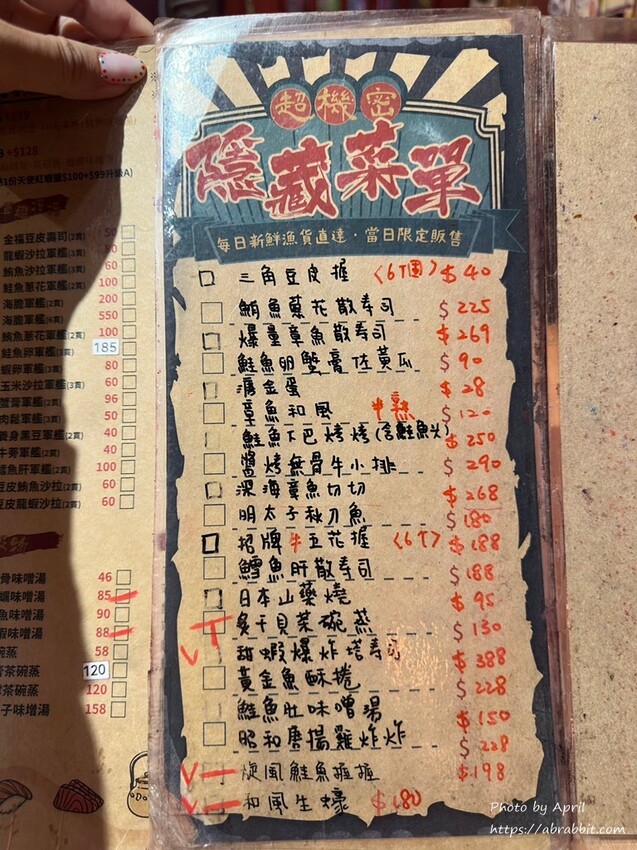 +$128
1份天使紅蝦鹽$100+$99升級A)
金福豆皮壽司(2貫) 50
龍蝦沙拉軍艦(3貫) 60
鮪魚沙拉軍艦(3貫) 60
鮭魚蔥花軍艦(2貫) 100
海膽軍艦(2貫) 200
海膽軍艦(6貫) 550
鮪魚蔥花軍艦(2貫) 100
鮭魚卵軍艦 185
蝦卵軍艦 80
玉米沙拉軍艦(3貫) 60
蟹膏軍艦(2貫) 96
肉鬆軍艦(2貫) 50
養身黑豆軍艦(2貫) 60
牛蒡軍艦(2貫) 40
鱈魚肝軍艦(2貫) 100
豆皮鮪魚沙拉(2貫) 60
豆皮龍蝦沙拉(2貫) 60
骨味噌湯 46
味噌湯 85
魚味噌湯 90
味噌湯 88
碗蒸 58
茶碗蒸 120
茶碗蒸 120
子味噌湯 158
超機密
隱藏菜單
每日新鮮漁貨直達・當日限定販售
三角豆皮握 (6T團) $40
鮪魚蔥花散壽司 $225
爆量章魚散壽司 $269
鮭魚卵蟹膏佐黃瓜 $90
溏金蛋 $28
章魚和風 半熟 $120
鮭魚下巴烤烤(含鮭魚头) $250
醬烤無骨牛小排 $290
深海章魚切切 $268
明太子秋刀魚 $180
招牌牛五花握 (6T) $188
鱈魚肝散壽司 $188
日本山藥燒 $95
炙干貝茶碗蒸 $130
甜蝦爆炸塔壽司 $388
黃金魚酥捲 $228
鮭魚肚味噌湯 $150
昭和唐揚雞炸炸 $228
旋風鮭魚握握 $198
和風生蠔 $180
Photo by April
https://abrabbit.com